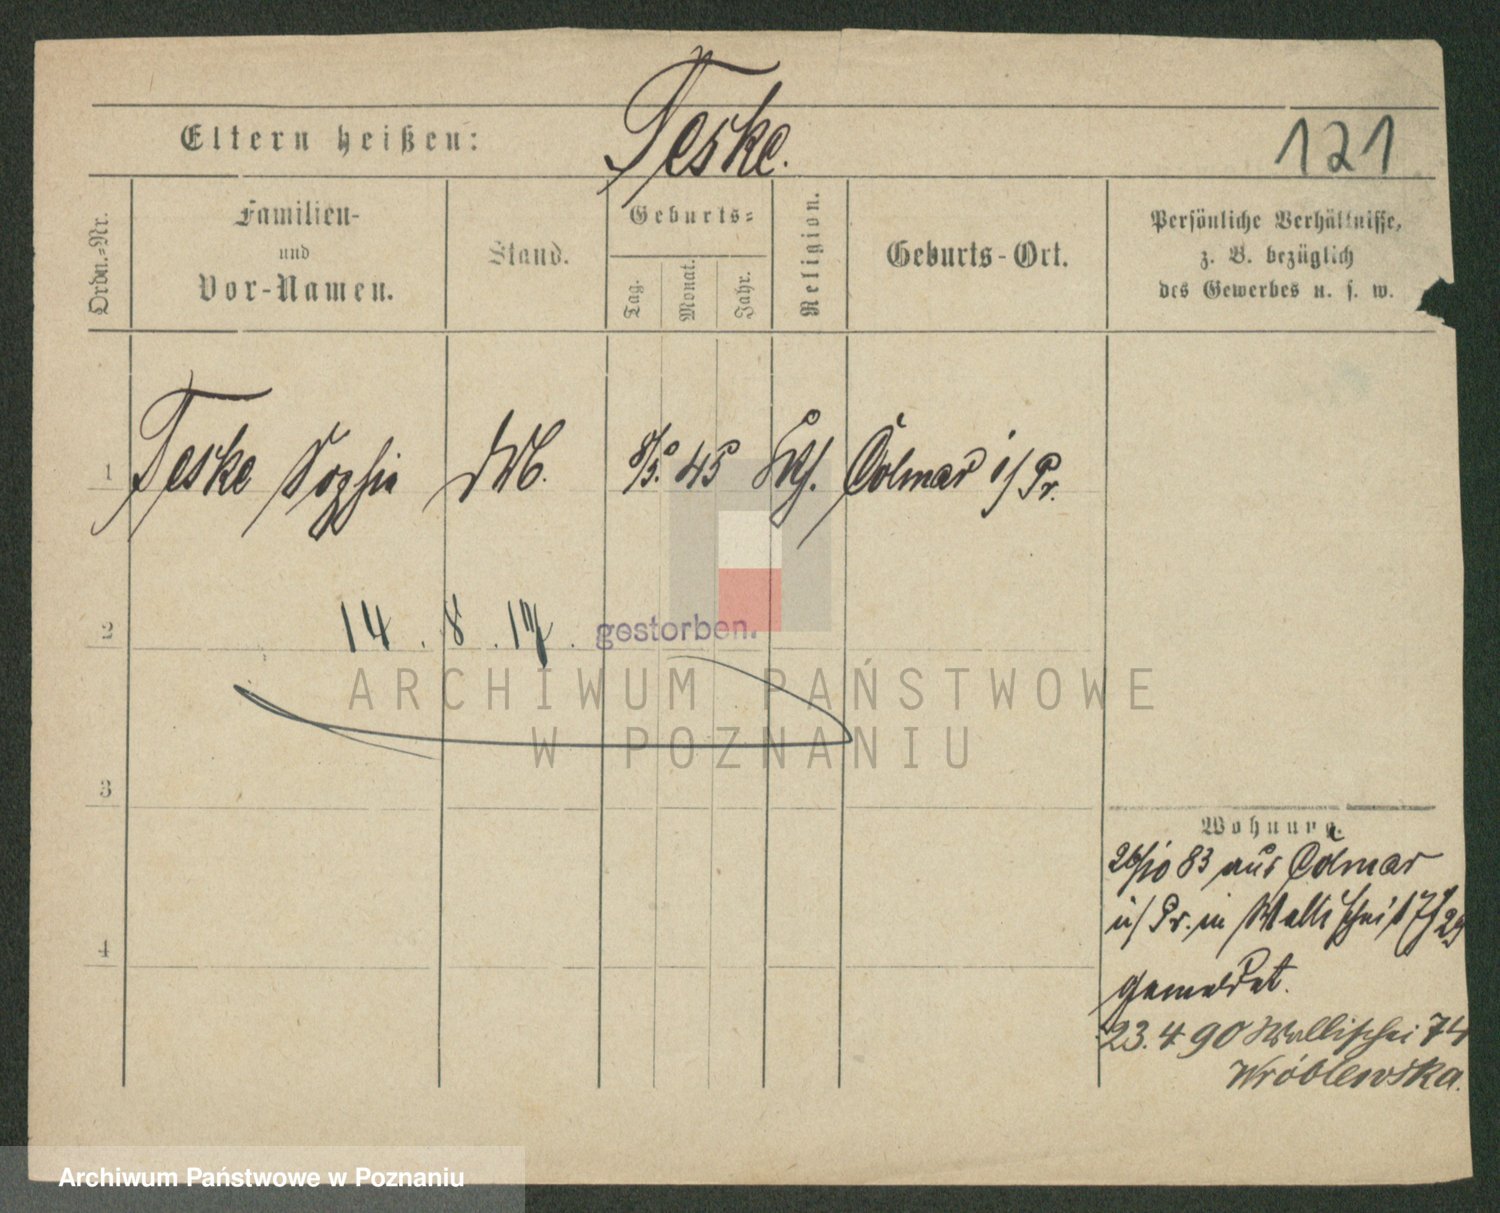 Teske.
Eltern heißen:
121
Ordn.-Nr.
Familien-
und
Vor-Namen.
Stand.
Geburts-
Tag.
Monat.
Jahr.
Religion.
Geburts-Ort.
Persönliche Verhältnisse,
z. B. bezüglich
des Gewerbes u. s. w.
1 Teske Sophia 8/5. 45 Colmar i/ Pr.
2 14. 8. 17. gestorben.
ARCHIWUM PAŃSTWOWE
W POZNANIU
3
Wohnung.
26/10 83 aus Colmar
i/ Pr. in Wallischei
4
gemeldet.
23. 4 90 Wallischei 74
Wróblewska.
Archiwum Państwowe w Poznaniu